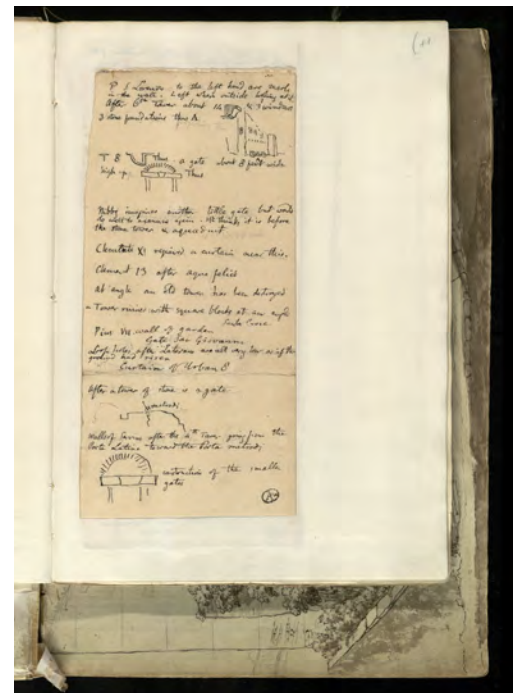 (11
P S Lorenzo to the left hand are merely
in the wall. Left when outside looking at it
After 6th Tower about 12 windows
3 stone foundations thus A.
T 8 Thus a gate about 8 feet wide
high up. Thus
Nibby imagines another little gate but wants
to examine again. He thinks it is before
the stone tower & aqueduct
Clemente XI repaired a curtain near this.
Clement 13 after aqua felice
At angle an old tower has been destroyed
Tower ruined with square blocks at an angle
Santa Croce
Pius VII wall of garden
Gate San Giovanni
Loop holes after Lateran are all very low as if the
ground had risen
Curtain of Urban 8
After a tower of stone is a gate
Walls after the 4th Tower going from the
Porta Latina toward the Porta
restoration of the smaller
gates